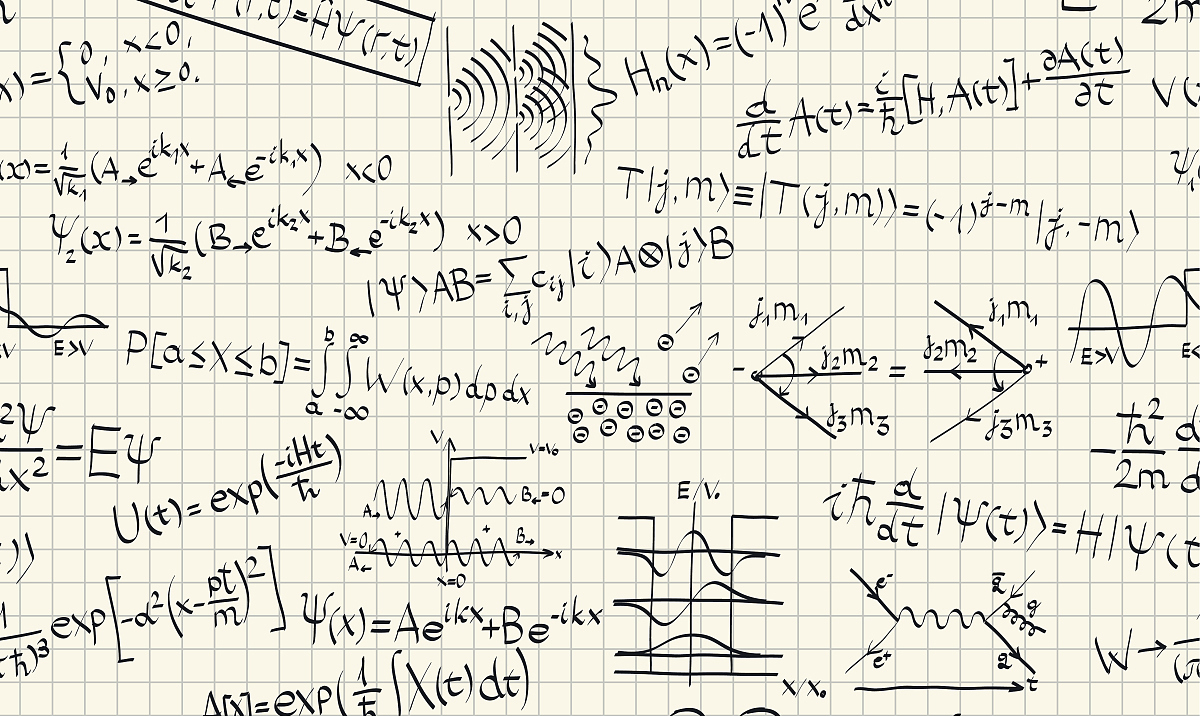 (r,t)=ĤΨ(r,t)
H_n(x)=(-1)^n e dx^n
2m
x)={0, x<0,
V_0, x≥0.
d/dt A(t)=i/ħ[H,A(t)]+∂A(t)/∂t
V(
(x)=1/√k_1(A→e^{ik_1x}+A←e^{-ik_1x}) x<0
T|j,m⟩≡|T(j,m)⟩=(-1)^{j-m}|j,-m⟩
Ψ_1
Ψ_2(x)=1/√k_2(B→e^{ik_2x}+B←e^{-ik_2x}) x>0
|Ψ⟩AB=∑_{i,j}c_{ij}|i⟩A⊗|j⟩B
V E>V
P[a≤X≤b]=∫_a^b∫_{-∞}^∞W(x,p)dpdx
- j_1m_1 j_2m_2 j_3m_3 = j_1m_1 j_2m_2 j_3m_3 +
E>V E<
²Ψ/x²=EΨ
-ħ²/2m d/d
U(t)=exp(-iHt/ħ)
V V=V_0
A→ B←=0
V=0 + + B→
A← x
x=0
E/V_0
X/X_0
iħ d/dt|Ψ(t)⟩=H|Ψ(t
)⟩
1/ħ)³ exp[-α²(x-pt/m)²]
Ψ(x)=Ae^{ikx}+Be^{-ikx}
e⁻ q̄ g
e⁺ q
t
W→
A[x]=exp(1/ħ∫X(t)dt)